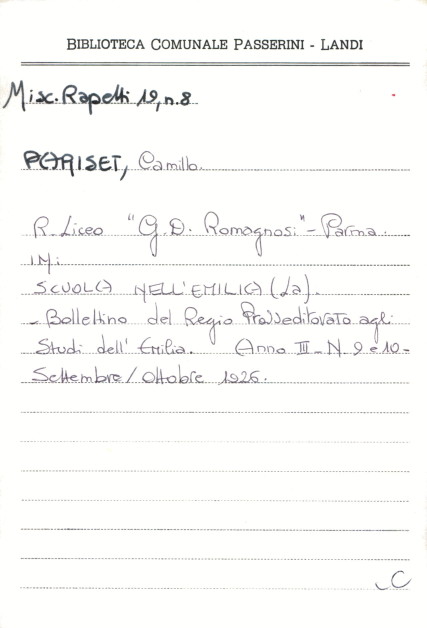 BIBLIOTECA COMUNALE PASSERINI - LANDI
Misc. Rapetti 19, n.8
PARISET, Camillo.
R. Liceo "G.D. Romagnosi" - Parma.
IN:
SCUOLA NELL'EMILIA (La).
- Bollettino del Regio Provveditorato agli
Studi dell'Emilia. Anno III - N. 9 e 10 -
Settembre/Ottobre 1926.